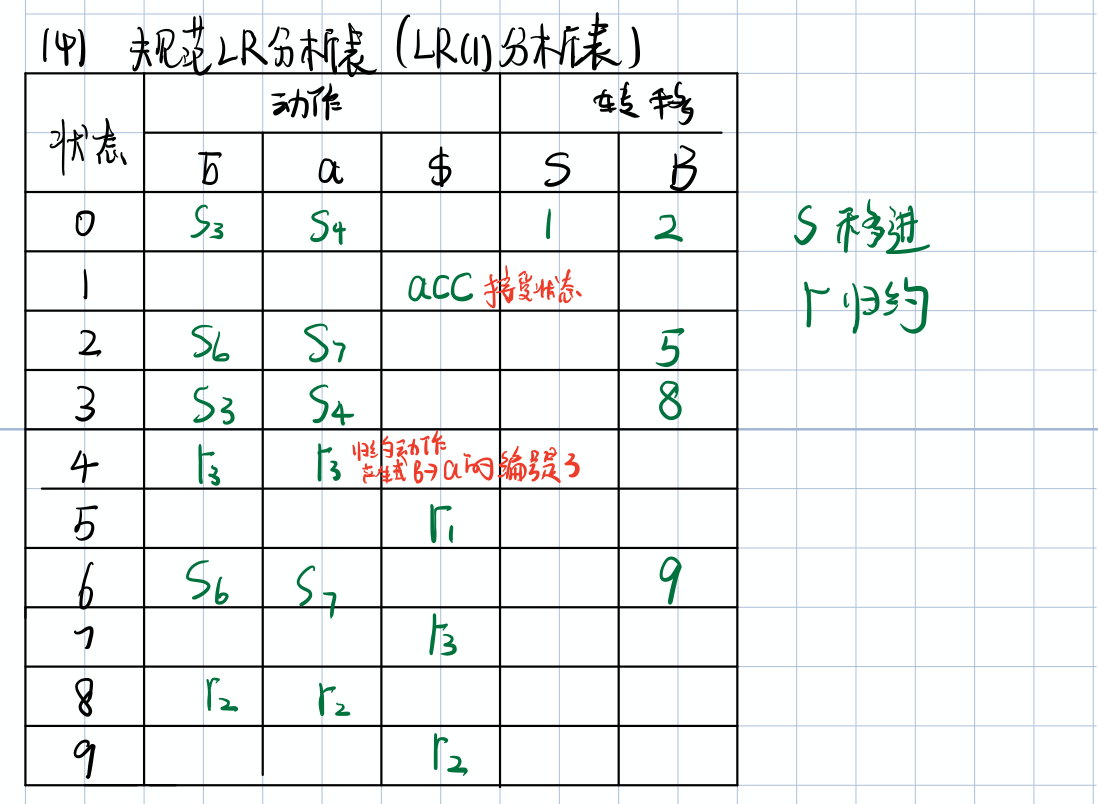 (4) 规范LR分析表 (LR(1)分析表)
状态 动作 转移
b a $ S B
0 S3 S4 1 2
S 移进
1 acc 接受状态
r 归约
2 S6 S7 5
3 S3 S4 8
4 r3 r3 归约动作
产生式 B→a 的编号是3
5 r1
6 S6 S7 9
7 r3
8 r2 r2
9 r2